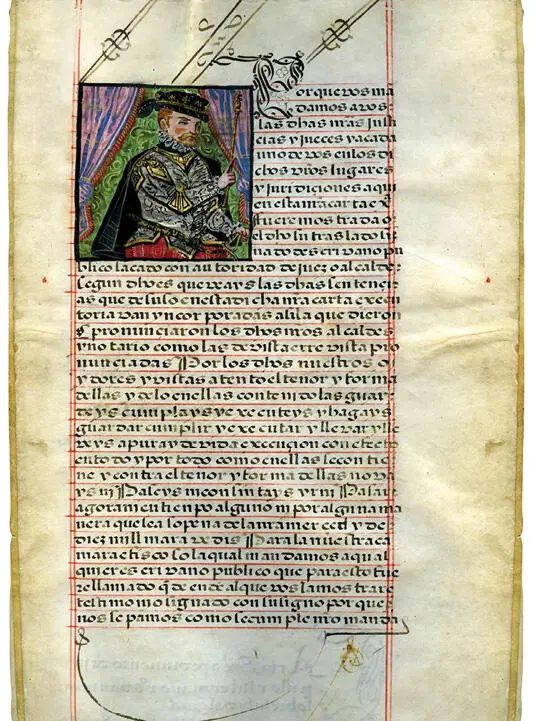 Porque vos ma
damos a vos
las dhas mras justi
cias y jueces y a cada
uno de vos en los di
chos vros lugares
y juridiciones a qui
en esta mi carta e x
fuere mostrada o
el dho su traslado si
nado de escrivano pu
blico sacado con autoridad de juez o alcalde
segun dho es que veays las dhas sentenci
as que de suso en esta dicha nra carta execu
toria van yncorporadas asi la que dieron
E pronunciaron los dhos nros alcaldes
y notario como las de vista e rrevista pro
nunciadas Por los dhos nuestros o
ydores y vistas atento el tenor y forma
dellas y de lo en ellas contenido las guar
deys cumplays y executeys y hagays
guardar cumplir y executar y llevar y lle
veys a pura y devida execucion con efecto
en todo y por todo como en ellas se contie
ne y contra el tenor y forma dellas no va
ys ni Paseys ni consintays yr ni Pasar
agora ni en tienpo alguno ni por alguna ma
nera que sea so pena de la nra merced y de
diez mill maravedis Para la nuestra ca
mara e fisco so la qual mandamos a qual
quier escrivano publico que para esto fue
re llamado q de ende al que vos la mostrare
testimonio signado con su signo por que
nos sepamos como se cumple nro manda